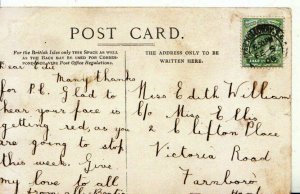 POST CARD.
For the British Isles only this SPACE as well
as the Back may be used for Correspondence.
see Post Office Regulations.
THE ADDRESS ONLY TO BE
WRITTEN HERE.
Dear Edie
Many thanks
for P.C. Glad to
hear your face is
getting red, as you
are going to stop
this week. Give
my love to all
from all
Miss Edith William
c/o Miss Ellis
2 Clifton Place
Victoria Road
Farnboro